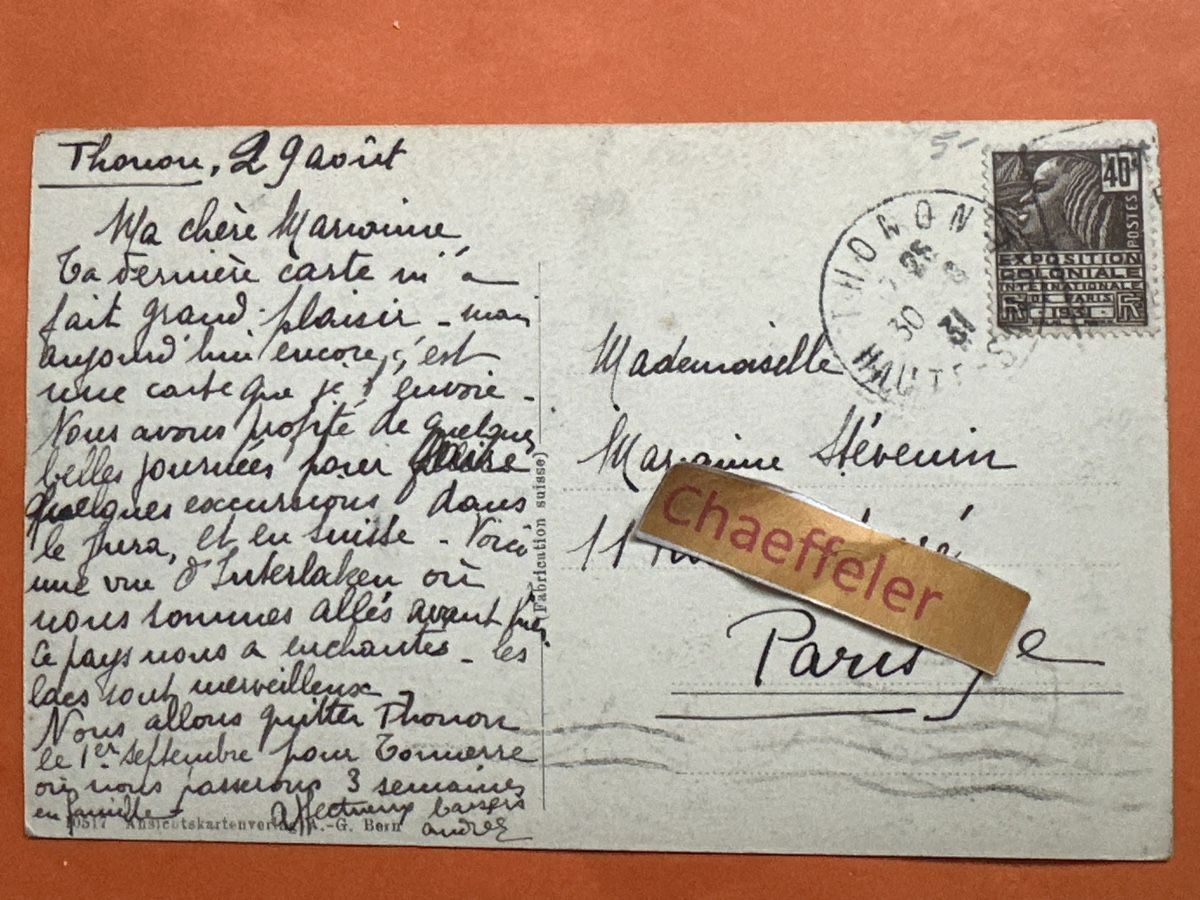 Thonon, 29 août
Ma chère Marianne,
Ta dernière carte m'a
fait grand plaisir - mais
aujourd'hui encore, c'est
une carte que je t'envoie -
Nous avons profité de quelques
belles journées pour faire
quelques excursions dans
le Jura, et en Suisse - Voici
une vue d'Interlaken où
nous sommes allés avant hier
Ce pays nous a enchantés - les
lacs sont merveilleux
Nous allons quitter Thonon
le 1er septembre pour Tonnerre
où nous passerons 3 semaines
en famille -
affectueux baisers
10517 Ansichtskartenverlag A.-G. Bern
(Fabrication suisse)
THONON
25
30 8 31
HAUTE-S
40c
POSTES
EXPOSITION
COLONIALE
INTERNATIONALE
DE PARIS
RF 1931 RF
Mademoiselle
Marianne Stévenin
11
Chaeffeler
Paris